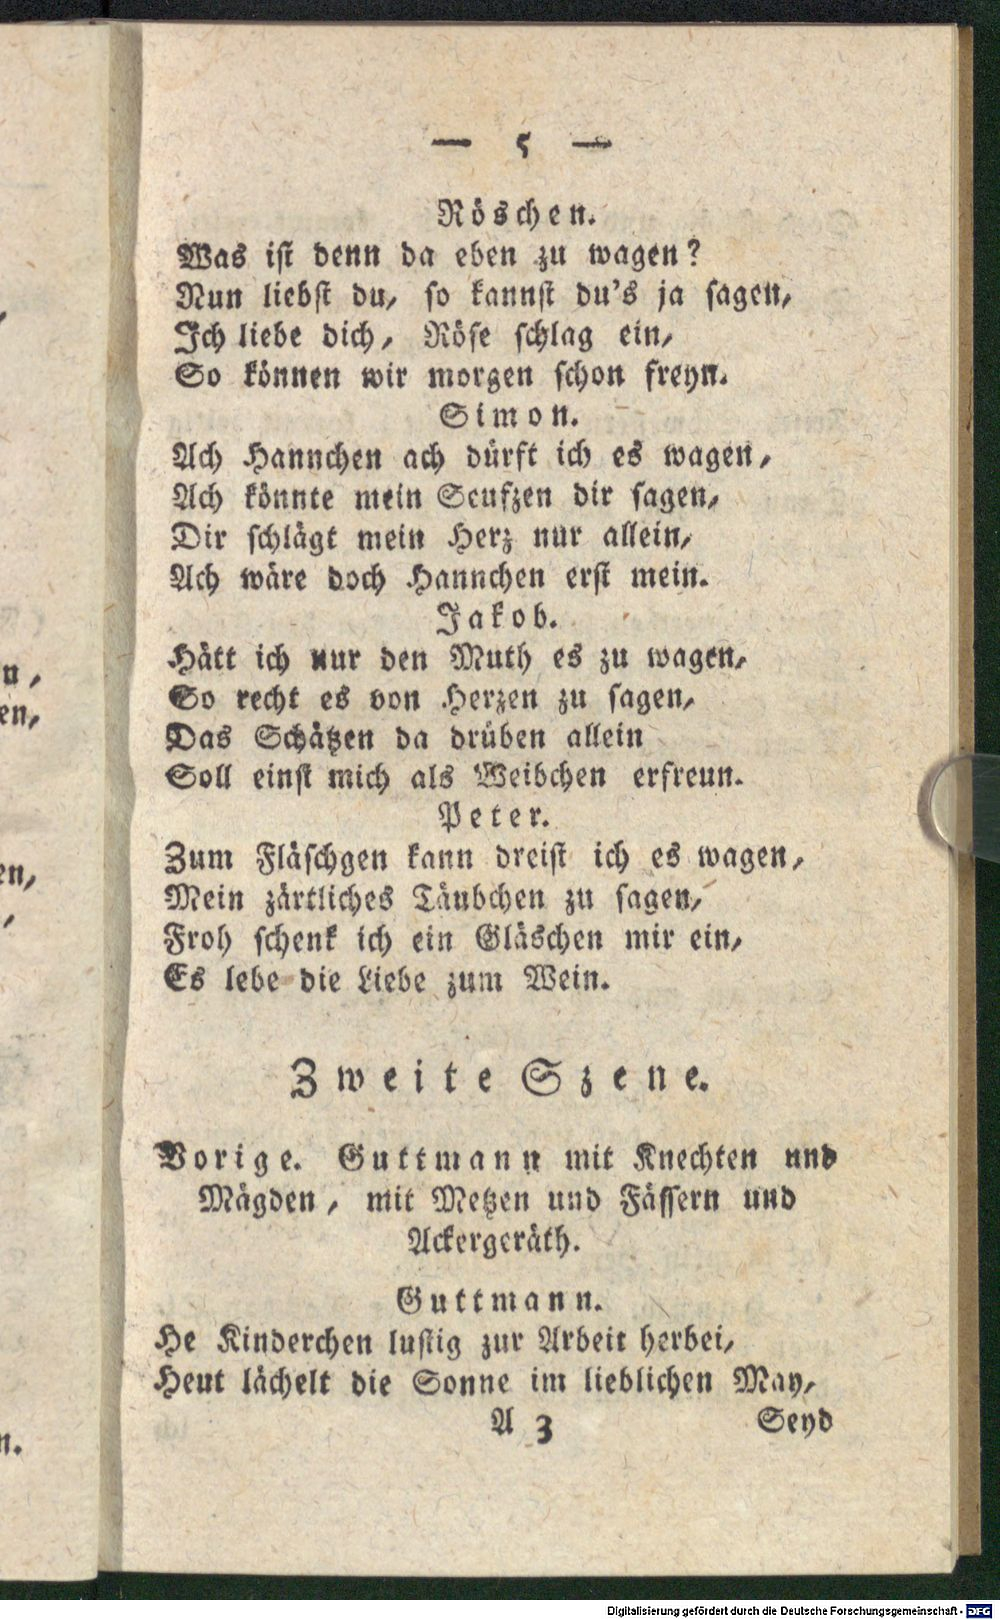 — 5 —
Röschen.
Was ist denn da eben zu wagen?
Nun liebst du, so kannst du's ja sagen,
Ich liebe dich, Röse schlag ein,
So können wir morgen schon freyn.
Simon.
Ach Hannchen ach dürft ich es wagen,
Ach könnte mein Seufzen dir sagen,
Dir schlägt mein Herz nur allein,
Ach wäre doch Hannchen erst mein.
Jakob.
Hätt ich nur den Muth es zu wagen,
So recht es von Herzen zu sagen,
Das Schätzen da drüben allein
Soll einst mich als Weibchen erfreun.
Peter.
Zum Fläschgen kann dreist ich es wagen,
Mein zärtliches Täubchen zu sagen,
Froh schenk ich ein Gläschen mir ein,
Es lebe die Liebe zum Wein.
Zweite Szene.
Vorige. Guttmann mit Knechten und
Mägden, mit Metzen und Fässern und
Ackergeräth.
Guttmann.
He Kinderchen lustig zur Arbeit herbei,
Heut lächelt die Sonne im lieblichen May,
A 3 Seyd
Digitalisierung gefördert durch die Deutsche Forschungsgemeinschaft - DFG